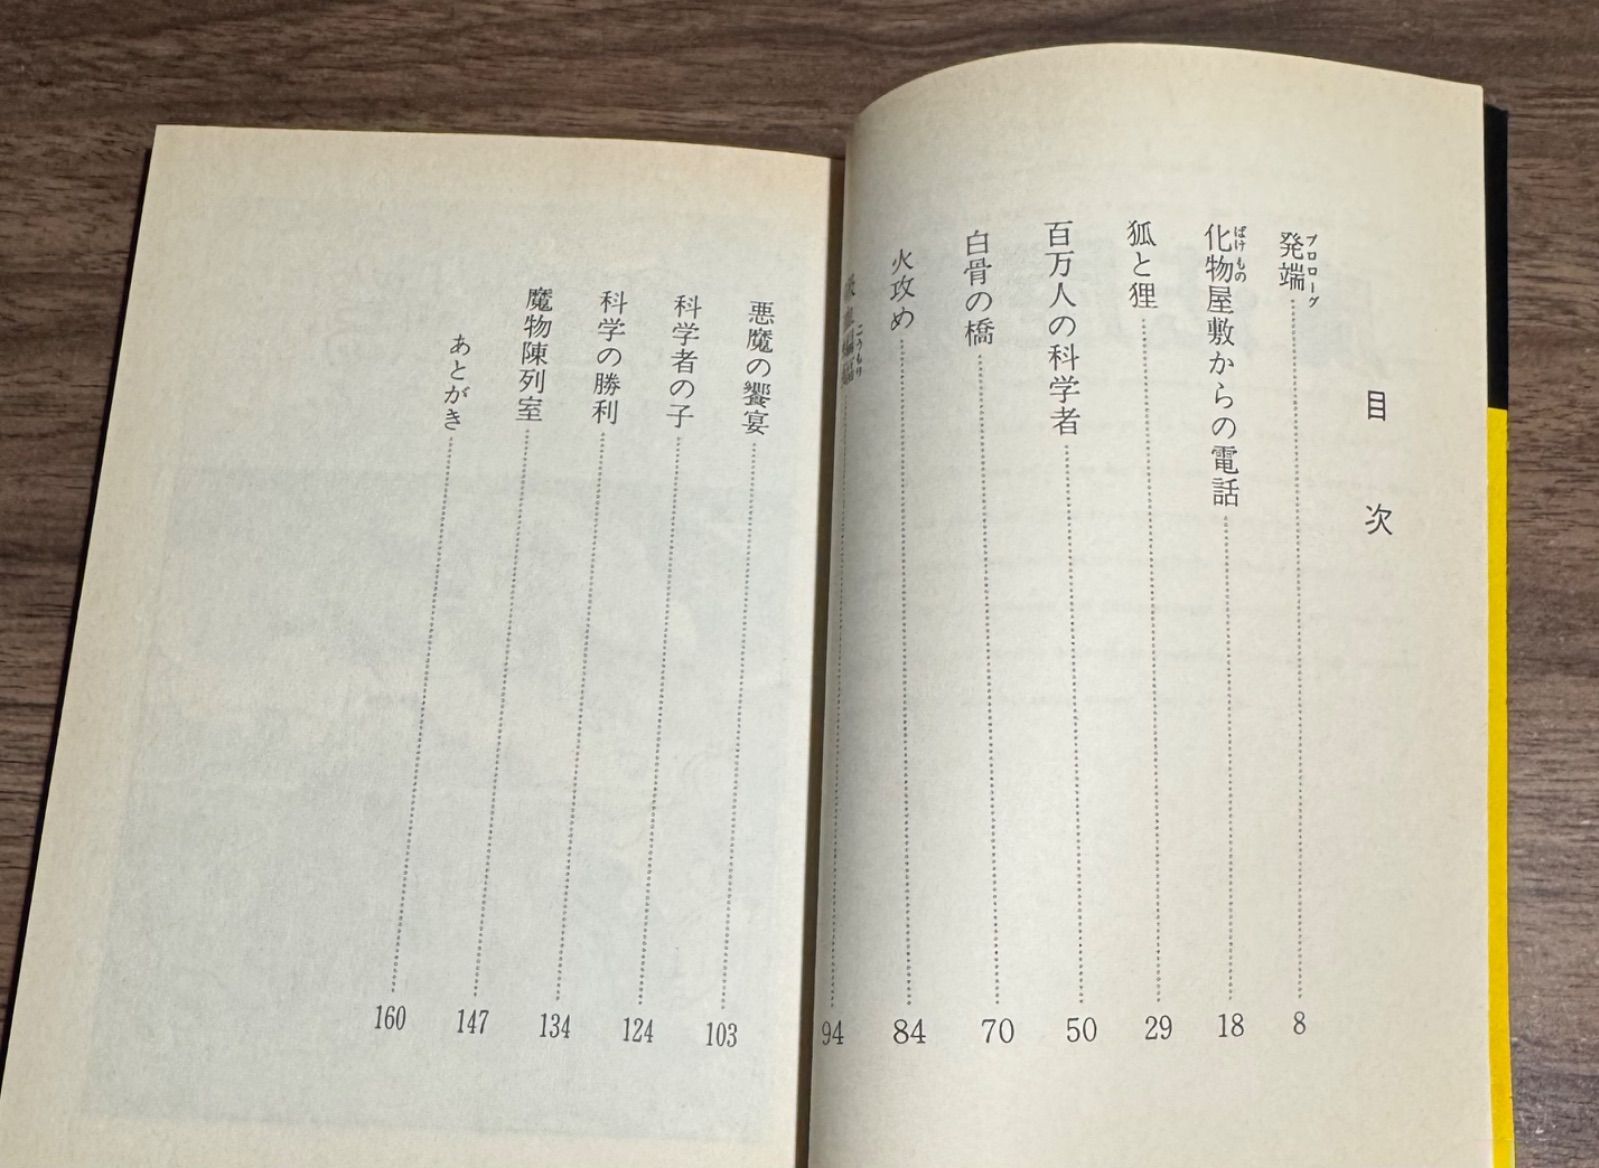 目次
発端 プロローグ 8
化物屋敷からの電話 ばけもの 18
狐と狸 29
百万人の科学者 50
白骨の橋 70
火攻め 84
こうもり 94
悪魔の饗宴 103
科学者の子 124
科学の勝利 134
魔物陳列室 147
あとがき 160